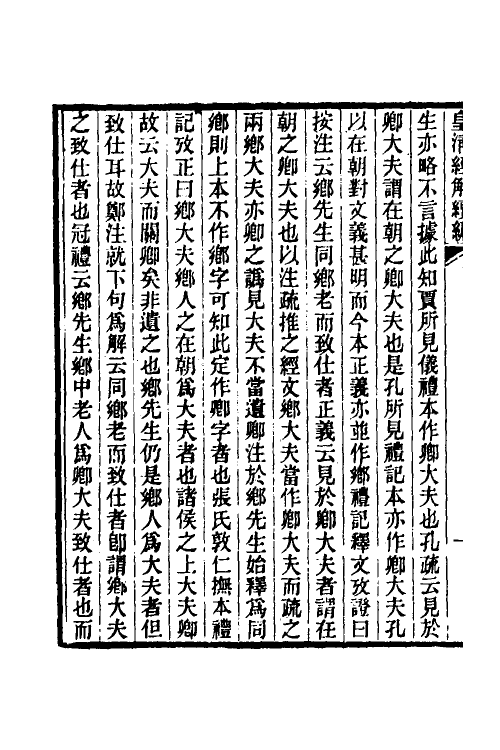 皇清經解續編
生亦略不言據此知賈所見儀禮本作卿大夫也孔疏云見於
卿大夫謂在朝之卿大夫也是孔所見禮記本亦作卿大夫孔
以在朝對文義甚明而今本正義亦並作鄉禮記釋文攷證曰
按注云鄉先生同鄉老而致仕者正義云見於卿大夫者謂在
朝之卿大夫也以注疏推之經文鄉大夫當作卿大夫而疏之
兩鄉大夫亦卿之譌見大夫不當遺卿注於鄉先生始釋爲同
鄉則上本不作鄉字可知此定作卿字者也張氏敦仁撫本禮
記攷正曰鄉大夫鄉人之在朝爲大夫者也諸侯之上大夫卿
故云大夫而關卿矣非遺之也鄉先生仍是鄉人爲大夫者但
致仕耳故鄭注就下句爲解云同鄉老而致仕者卽謂鄉大夫
之致仕者也冠禮云鄉先生鄉中老人爲卿大夫致仕者也而
一